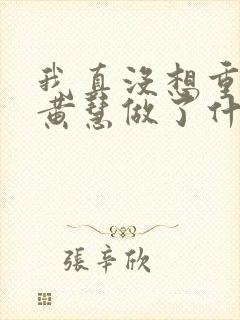 我真没想重
黄慧做了什
張辛欣